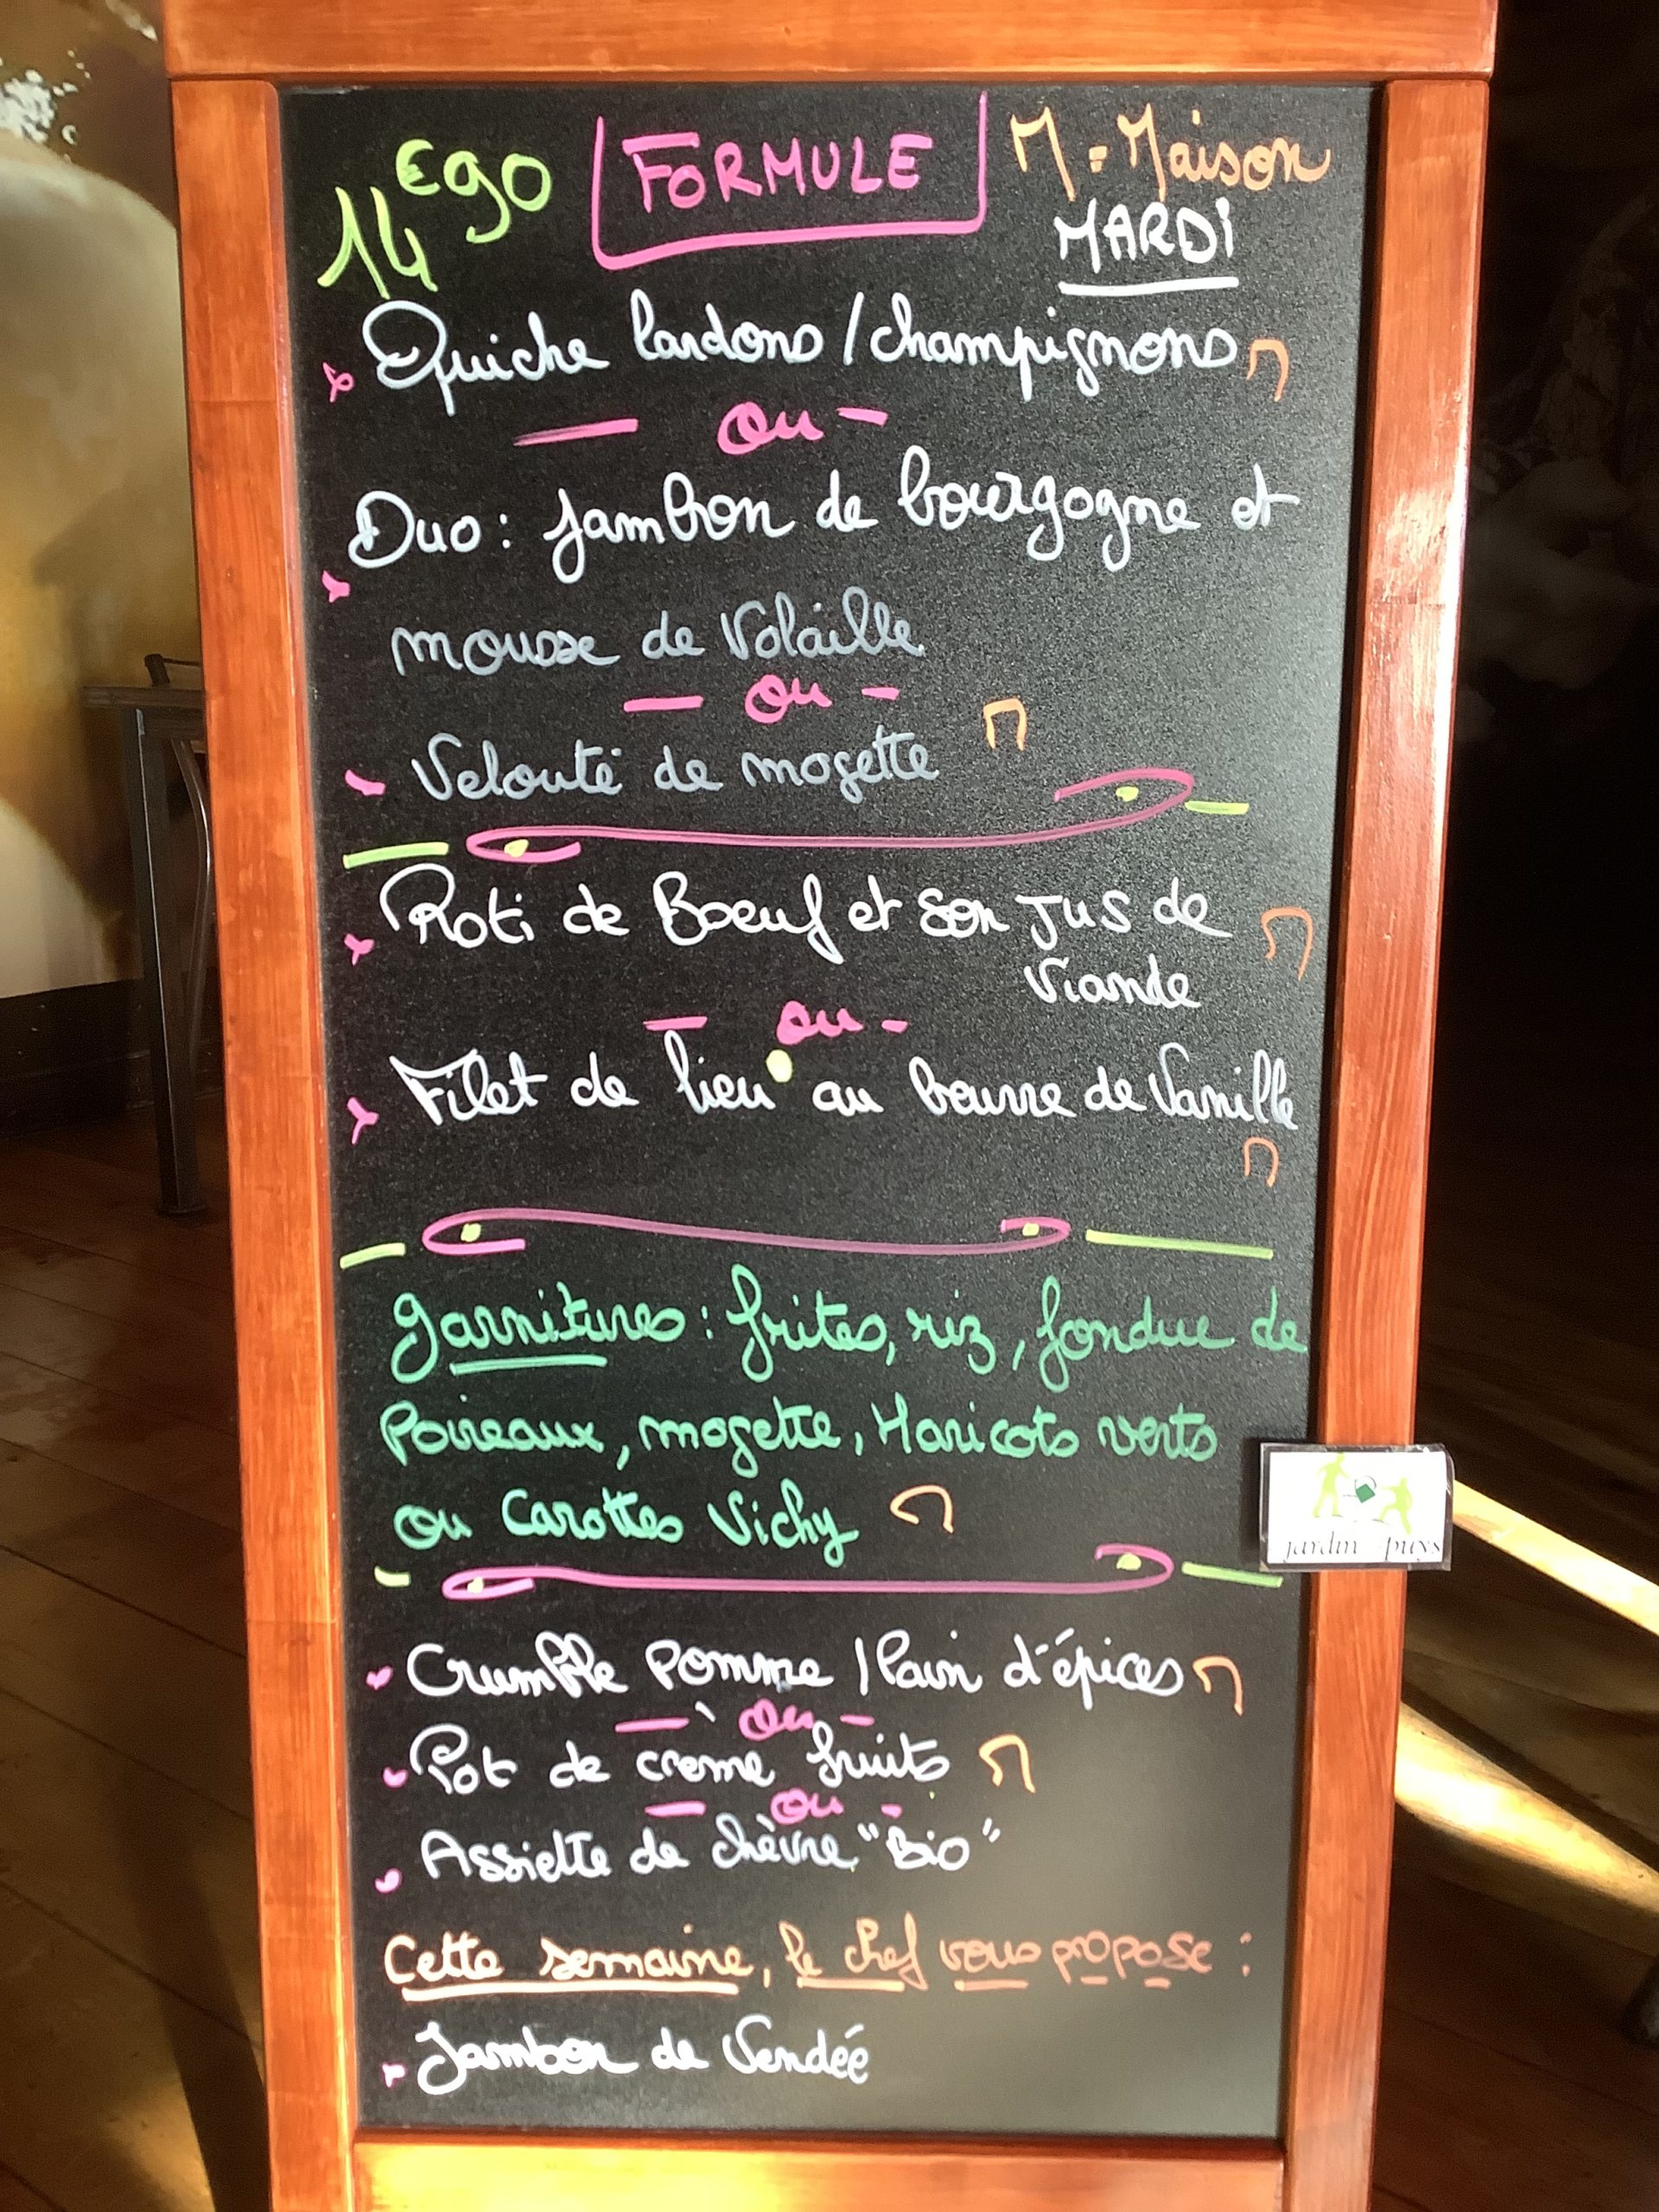 14€90 FORMULE M = Maison
MARDI
Quiche lardons / champignons M
- ou -
Duo : jambon de bourgogne et
mousse de Volaille
- ou -
Velouté de mogette M
Roti de Boeuf et son jus de M
Viande
- ou -
Filet de lieu au beurre de Vanille
M
garnitures : frites, riz, fondue de
Poireaux, mogette, Haricots verts
ou Carottes Vichy M
Crumble Pomme / Pain d'épices M
- ou -
Pot de crème fruits M
- ou -
Assiette de chèvre "Bio"
Cette semaine, le chef vous propose :
Jambon de Vendée
jardin puys